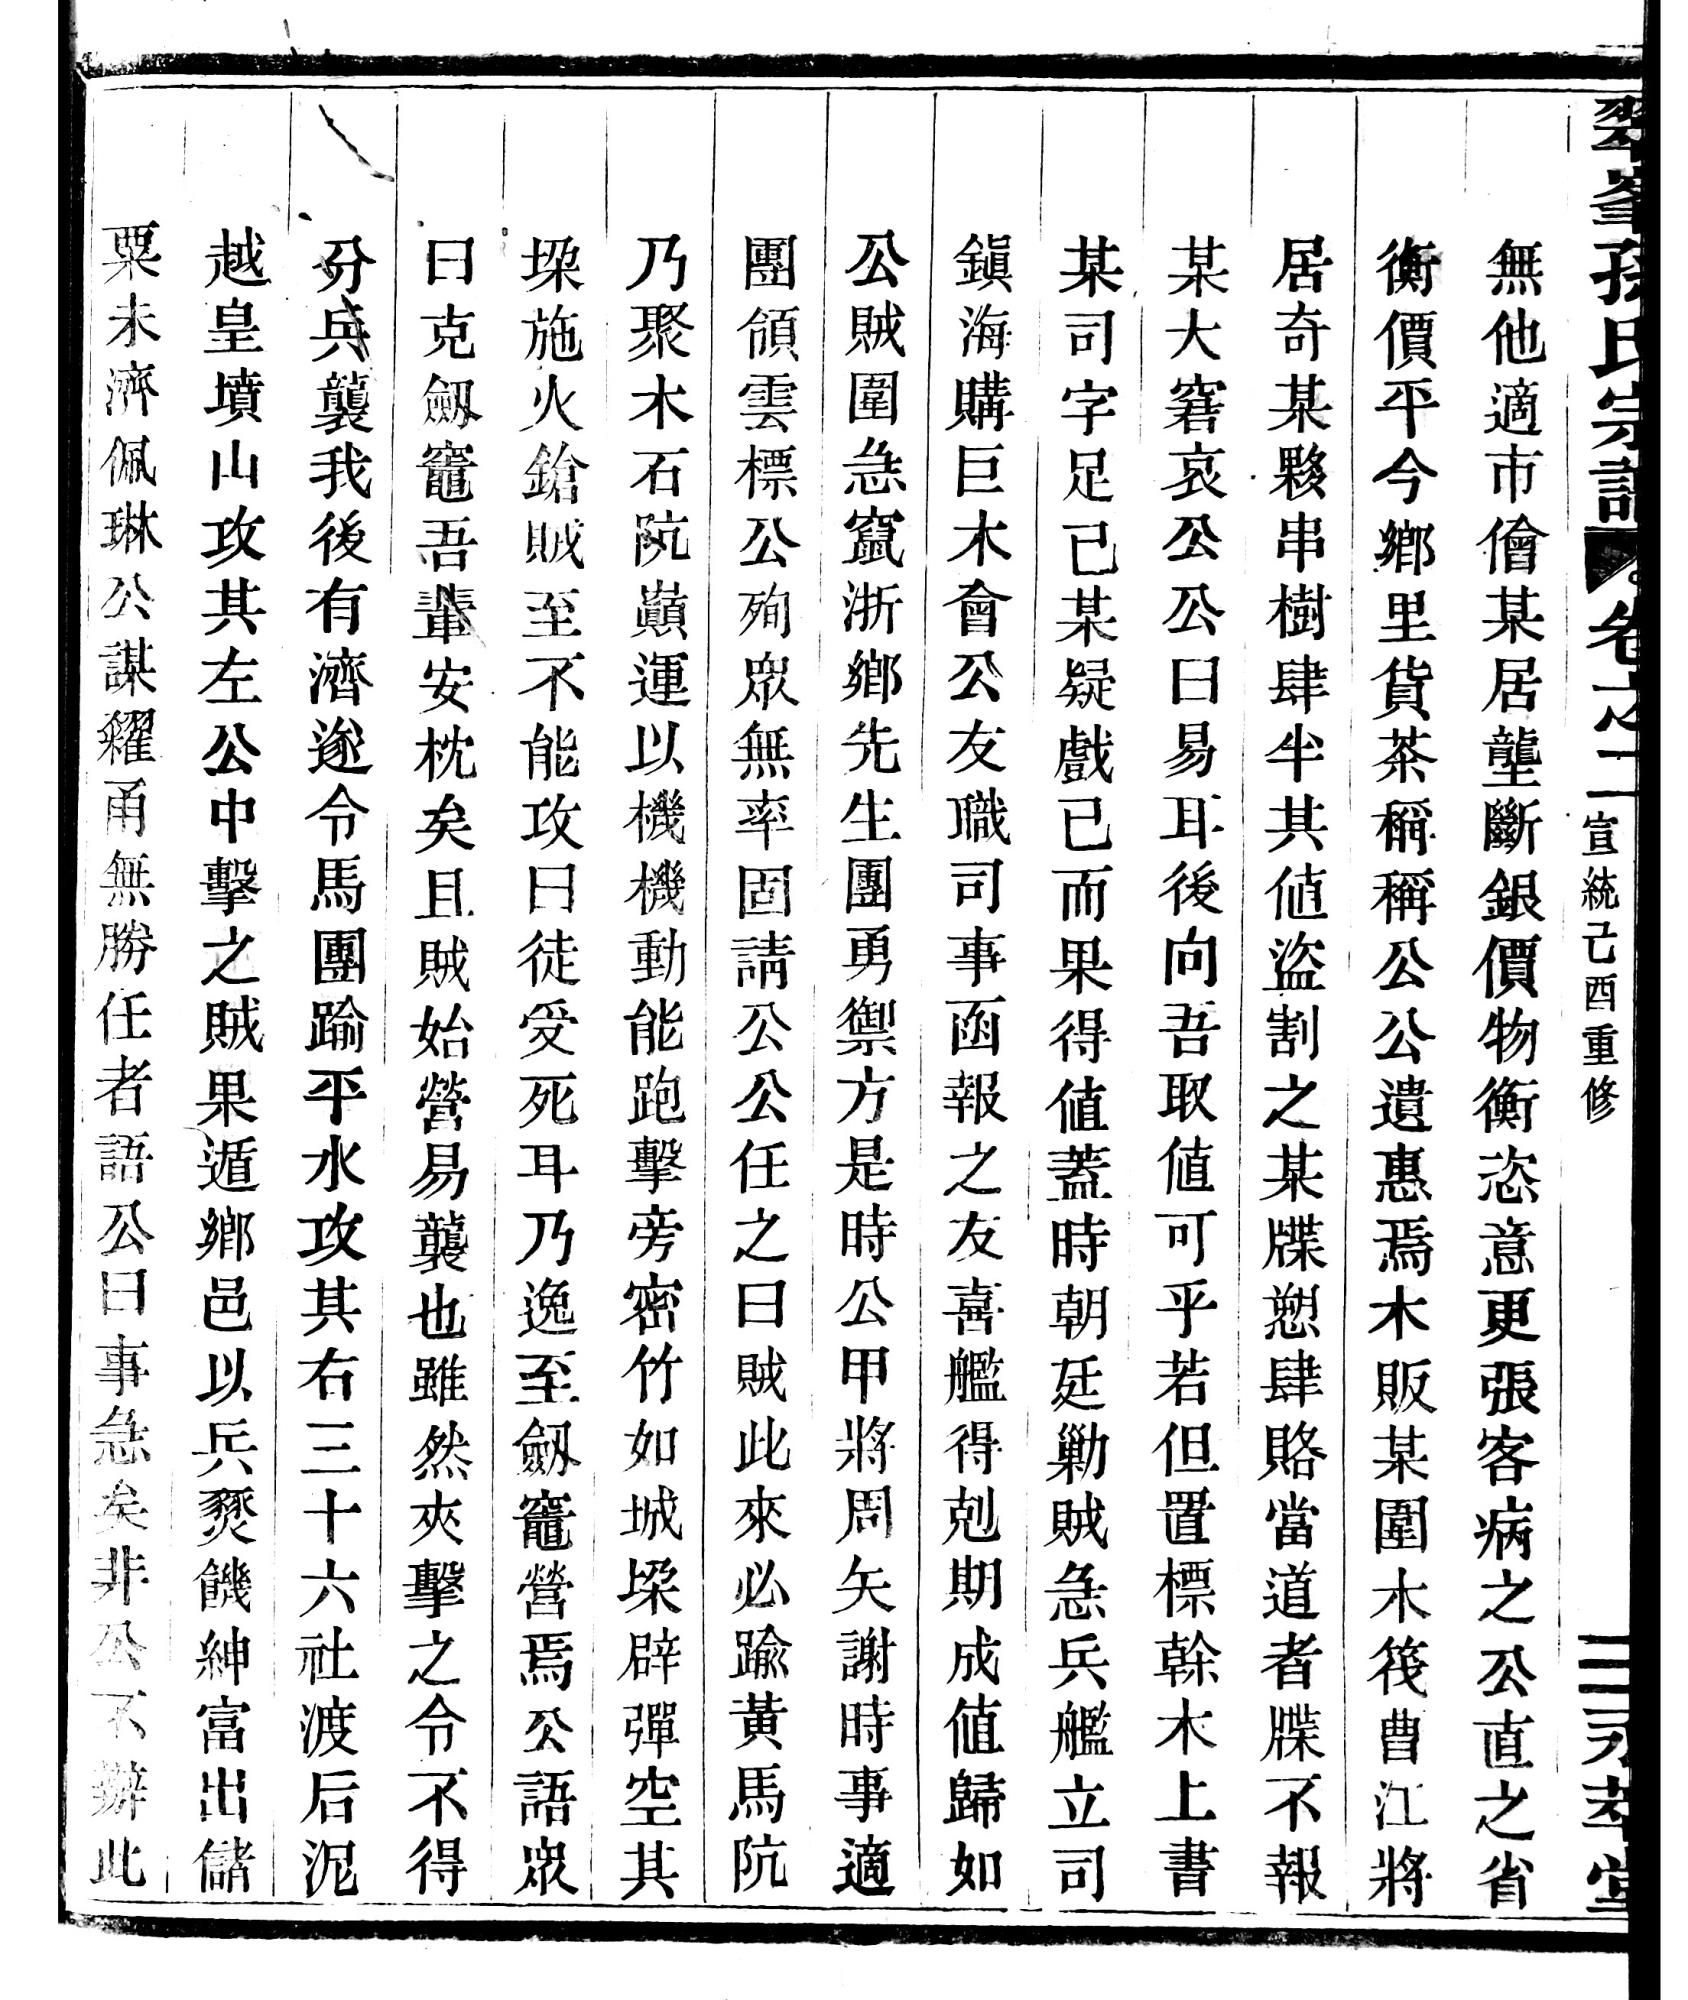 翠峯孫氏宗譜 卷之二 宣統己酉重修 三 永萃堂
無他適市儈某居壟斷銀價物衡恣意更張客病之公直之省
衡價平今鄉里貨茶稱稱公公遺惠焉木販某圍木筏曹江將
居奇某夥串樹肆半其値盜割之某牒愬肆賂當道者牒不報
某大窘哀公公曰易耳後向吾取値可乎若但置標幹木上書
某司字足已某疑戲已而果得値蓋時朝廷勦賊急兵艦立司
鎭海購巨木會公友職司事函報之友喜艦得剋期成値歸如
公賊圍急竄浙鄉先生團勇禦方是時公甲將周矢謝時事適
團領雲標公殉眾無率固請公公任之曰賊此來必踰黃馬阬
乃聚木石阬巔運以機機動能跑擊旁密竹如城垜辟彈空其
垜施火鎗賊至不能攻曰徒受死耳乃逸至劔竈營焉公語眾
曰克劔竈吾輩安枕矣且賊始營易襲也雖然夾擊之令不得
分兵襲我後有濟遂令馬團踰平水攻其右三十六社渡后泥
越皇墳山攻其左公中擊之賊果遁鄉邑以兵燹饑紳富出儲
粟未濟佩琳公謀糴甬無勝任者語公曰事急矣非公不辦此